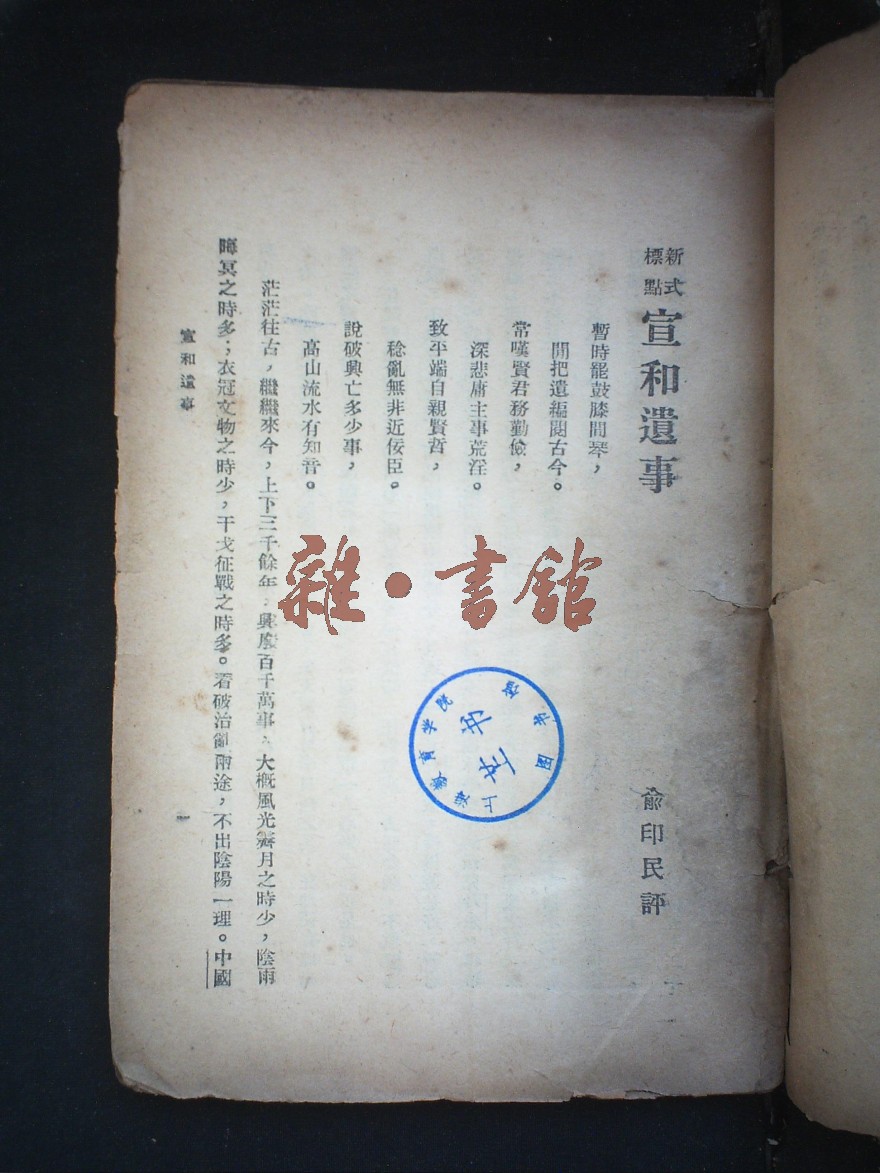 新式標點
宣和遺事
俞印民評
暫時罷鼓膝間琴，
閒把遺編閱古今。
常嘆賢君務勤儉，
深悲庸主事荒淫。
致平端自親賢哲，
稔亂無非近佞臣。
說破興亡多少事，
高山流水有知音。
茫茫往古，繼繼來今，上下三千餘年，興廢百千萬事，大概風光霽月之時少，陰雨
晦冥之時多；衣冠文物之時少，干戈征戰之時多。看破治亂兩途，不出陰陽一理。中國
宣和遺事
一
雜·書館
教育学院
图书馆